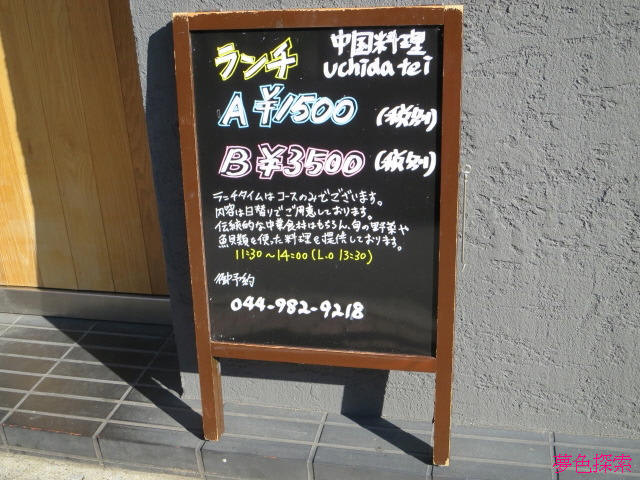 ランチ
中国料理
uchida tei
A ¥1500 (税別)
B ¥3500 (税別)
ランチタイムはコースのみでございます。
内容は日替りでご用意しております。
伝統的な中華食材はもちろん、旬の野菜や
魚貝類を使った料理を提供しております。
11:30～14:00(L.O 13:30)
御予約
044-982-9218
夢色探索